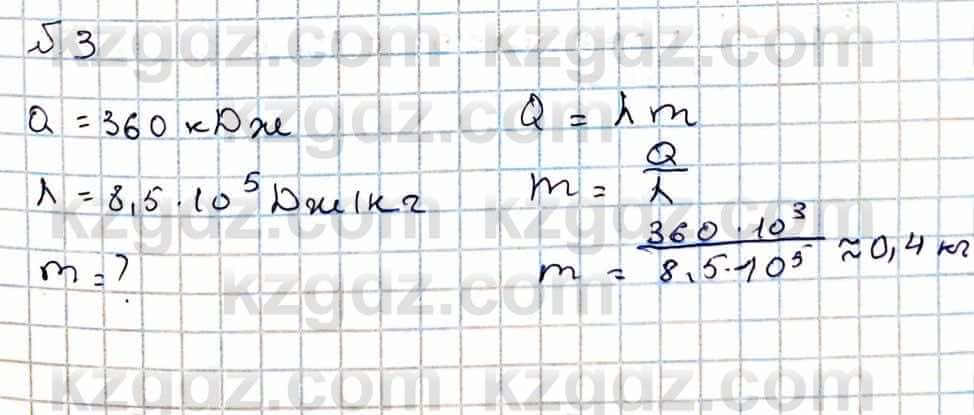 №3
Q = 360 кДж
λ = 8,5 · 10⁵ Дж/кг
m = ?
Q = λ m
m = Q/λ
m = 360 · 10³ / 8,5 · 10⁵ ≈ 0,4 кг
kzgdz.com kzgdz.com
kzgdz.com
kzgdz.com kzgdz.com
kzgdz.com
kzgdz.com kzgdz.com